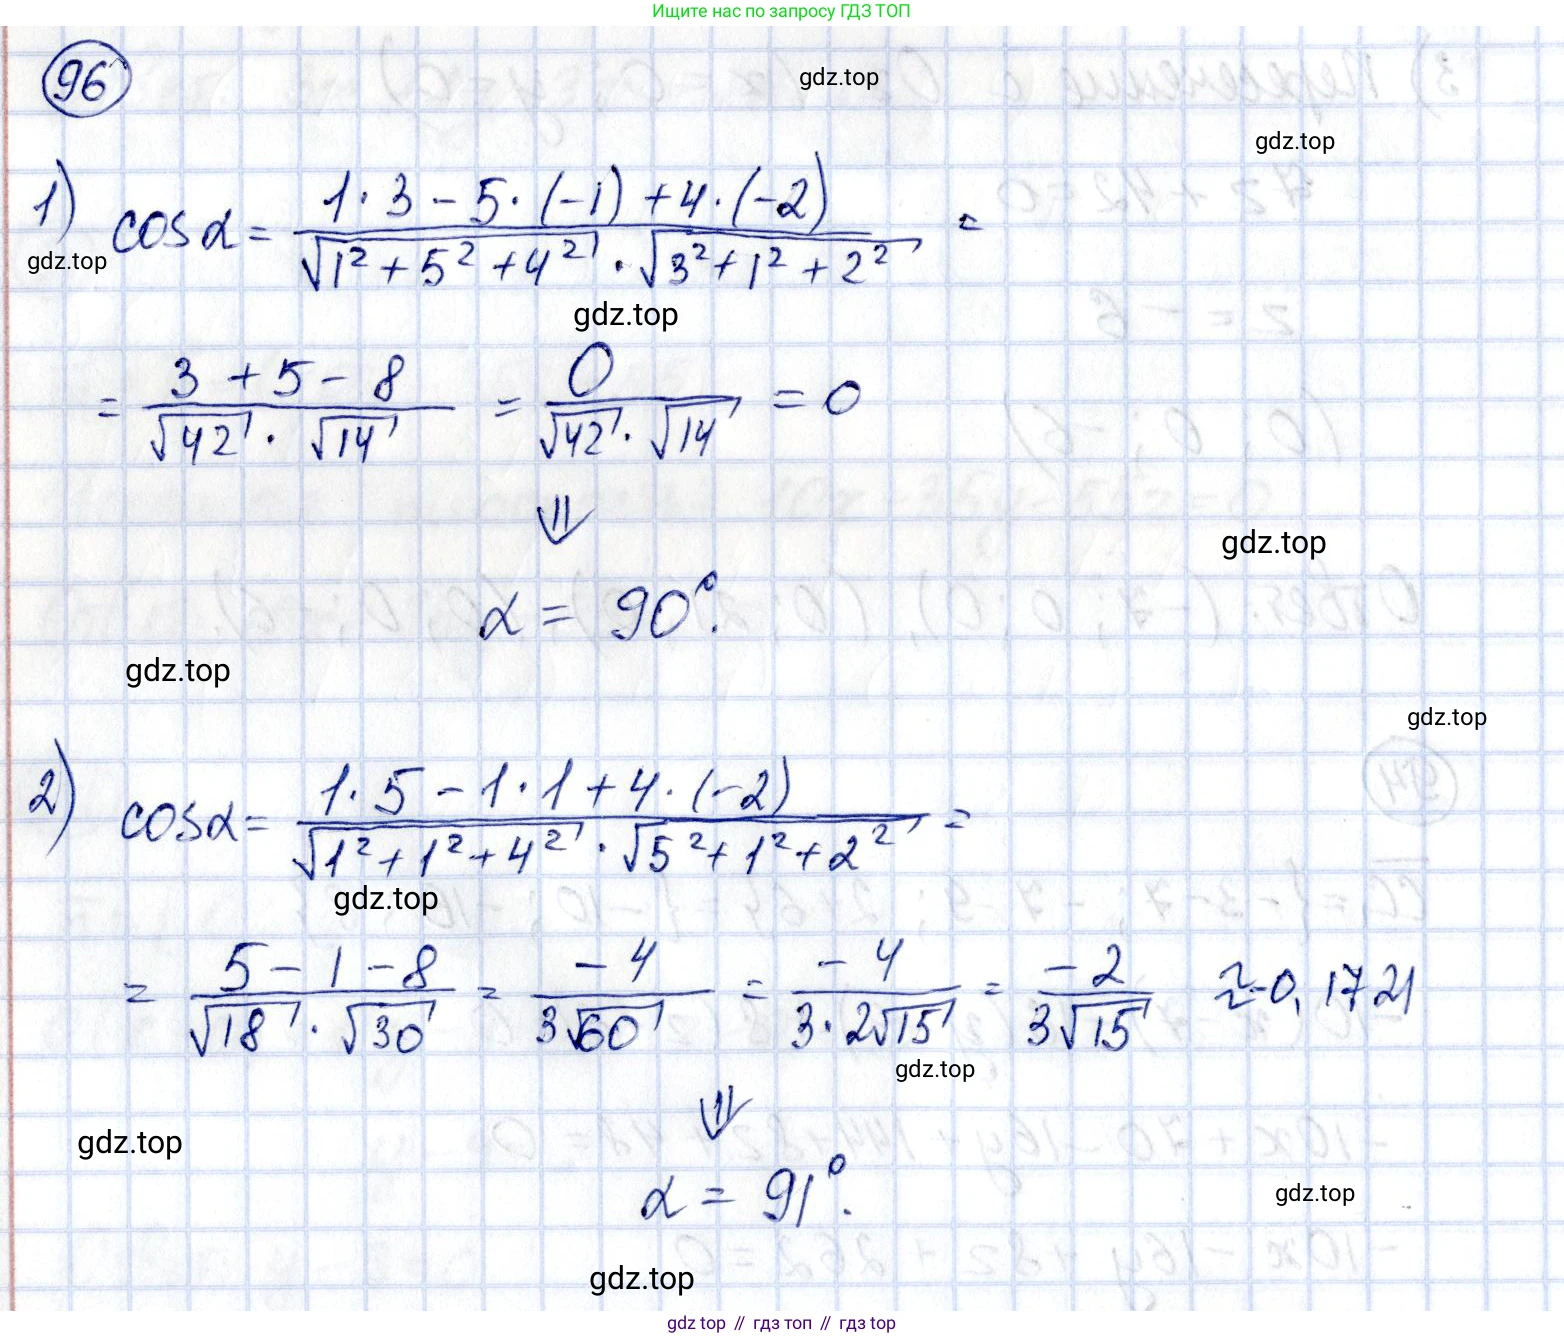 Ищите нас по запросу ГДЗ ТОП
96
gdz.top
gdz.top
1) cos α = (1 · 3 − 5 · (−1) + 4 · (−2)) / (√(1² + 5² + 4²) · √(3² + 1² + 2²)) =
gdz.top
gdz.top
= (3 + 5 − 8) / (√42 · √14) = 0 / (√42 · √14) = 0
⇓
gdz.top
α = 90°.
gdz.top
gdz.top
2) cos α = (1 · 5 − 1 · 1 + 4 · (−2)) / (√(1² + 1² + 4²) · √(5² + 1² + 2²)) =
gdz.top
= (5 − 1 − 8) / (√18 · √30) = −4 / (3√60) = −4 / (3 · 2√15) = −2 / (3√15) ≈ −0,1721
gdz.top
⇓
gdz.top
α = 91°.
gdz.top
gdz.top
gdz.top // гдз топ // gdz.top